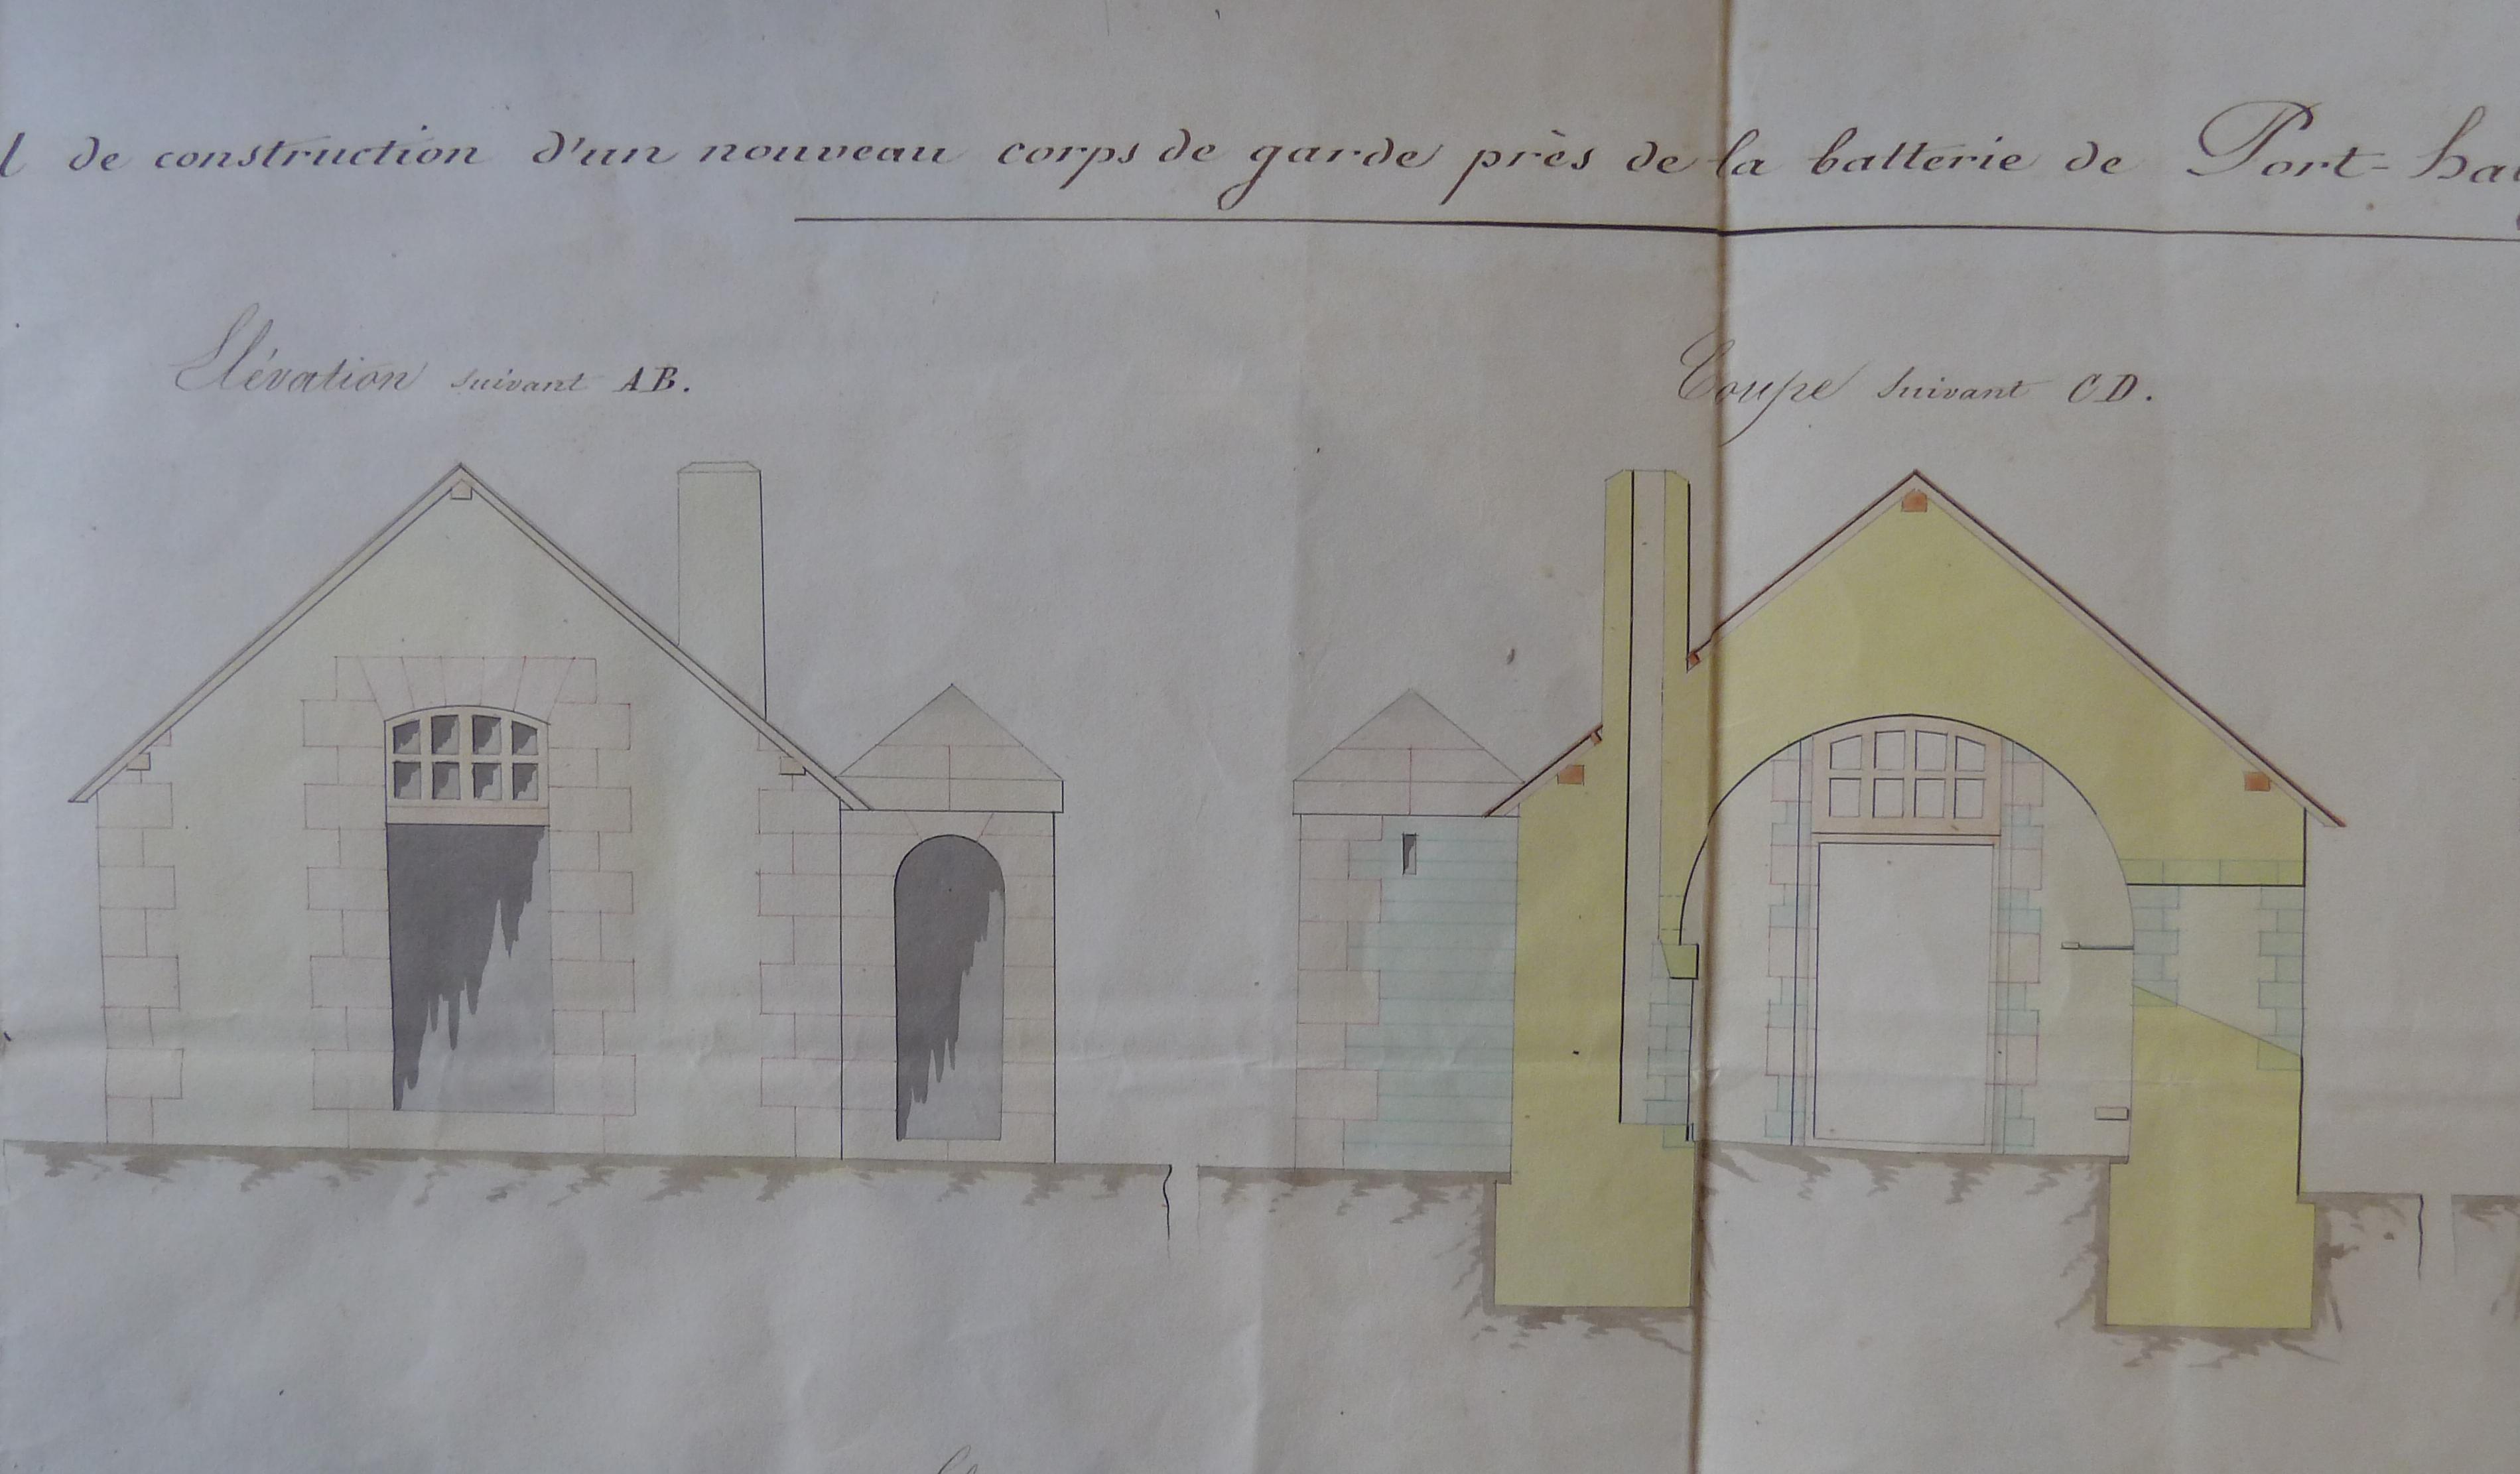 l de construction d'un nouveau corps de garde près de la batterie de Port-ha
Élévation suivant AB.
Coupe suivant CD.